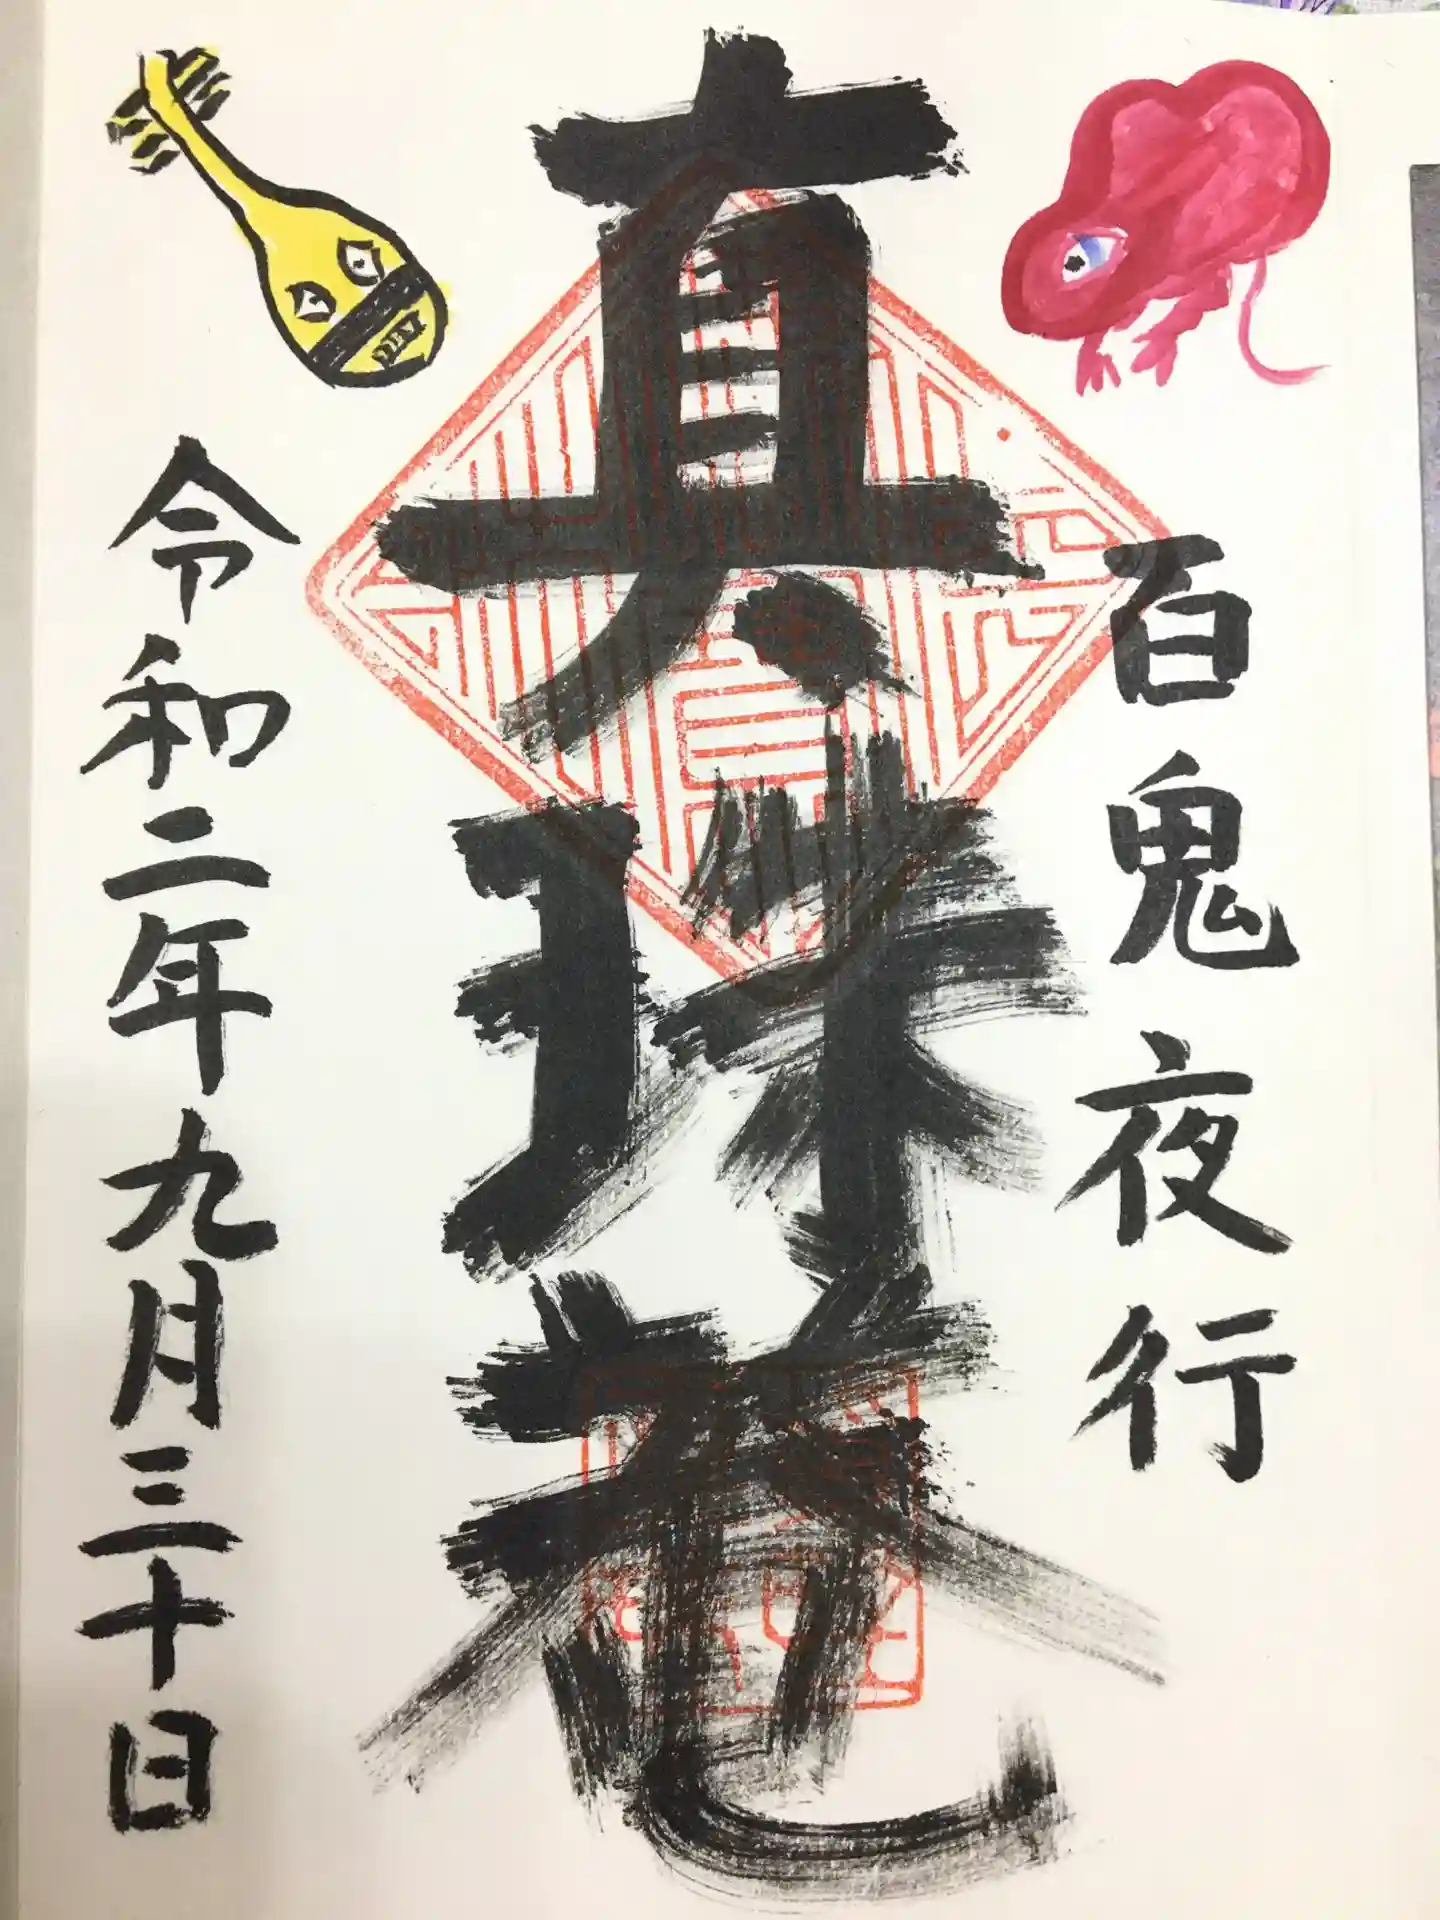 百鬼夜行
真珠庵
令和二年九月三十日